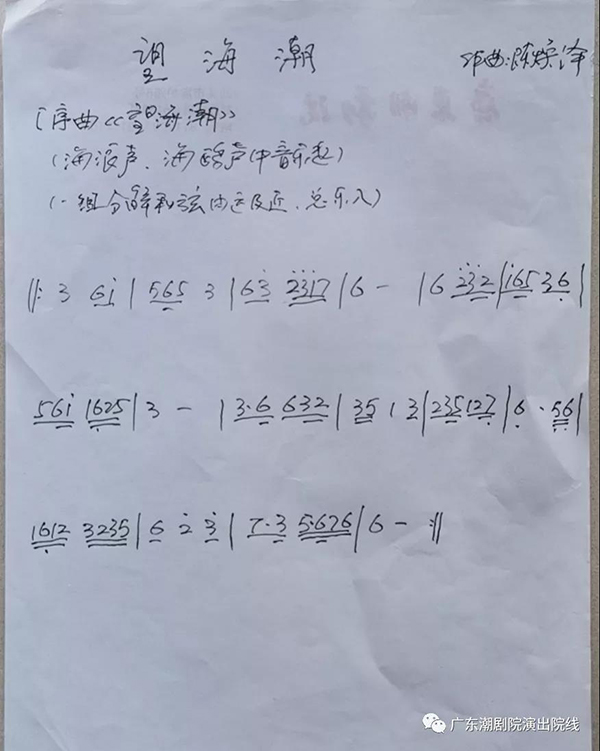 望海潮 作曲:陈
[序曲《望海潮》
(海浪声、海鸥声中音乐起)
(一组分解和弦由远及近、总乐入)
‖: 3 6i̇ | 565 3 | 63̇ 2̇3̇1̇7 | 6 - | 6 2̇3̇2̇ | i̇65 36̣ |
56i̇ 1625 | 3 - | 3·6 632 | 35 1 2 | 235 127̣ | 6̣ · 5̣6̣ |
16̣12 3235 | 6 2̇ 3̇ | 7·3 5·676 | 6 - :‖
广东潮剧院演出院线